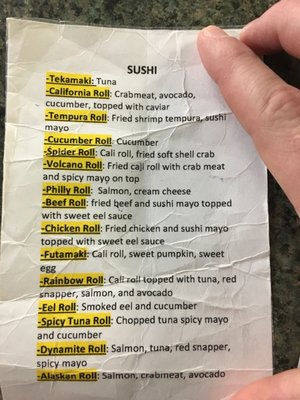 SUSHI
-Tekamaki: Tuna
-California Roll: Crabmeat, avocado,
cucumber, topped with caviar
-Tempura Roll: Fried shrimp tempura, sushi
mayo
-Cucumber Roll: Cucumber
-Spider Roll: Cali roll, fried soft shell crab
-Volcano Roll: Fried cali roll with crab meat
and spicy mayo on top
-Philly Roll: Salmon, cream cheese
-Beef Roll: fried beef and sushi mayo topped
with sweet eel sauce
-Chicken Roll: Fried chicken and sushi mayo
topped with sweet eel sauce
-Futamaki: Cali roll, sweet pumpkin, sweet
egg
-Rainbow Roll: Cali roll topped with tuna, red
snapper, salmon, and avocado
-Eel Roll: Smoked eel and cucumber
-Spicy Tuna Roll: Chopped tuna spicy mayo
and cucumber
-Dynamite Roll: Salmon, tuna, red snapper,
spicy mayo
-Alaskan Roll: Salmon, crabmeat, avocado